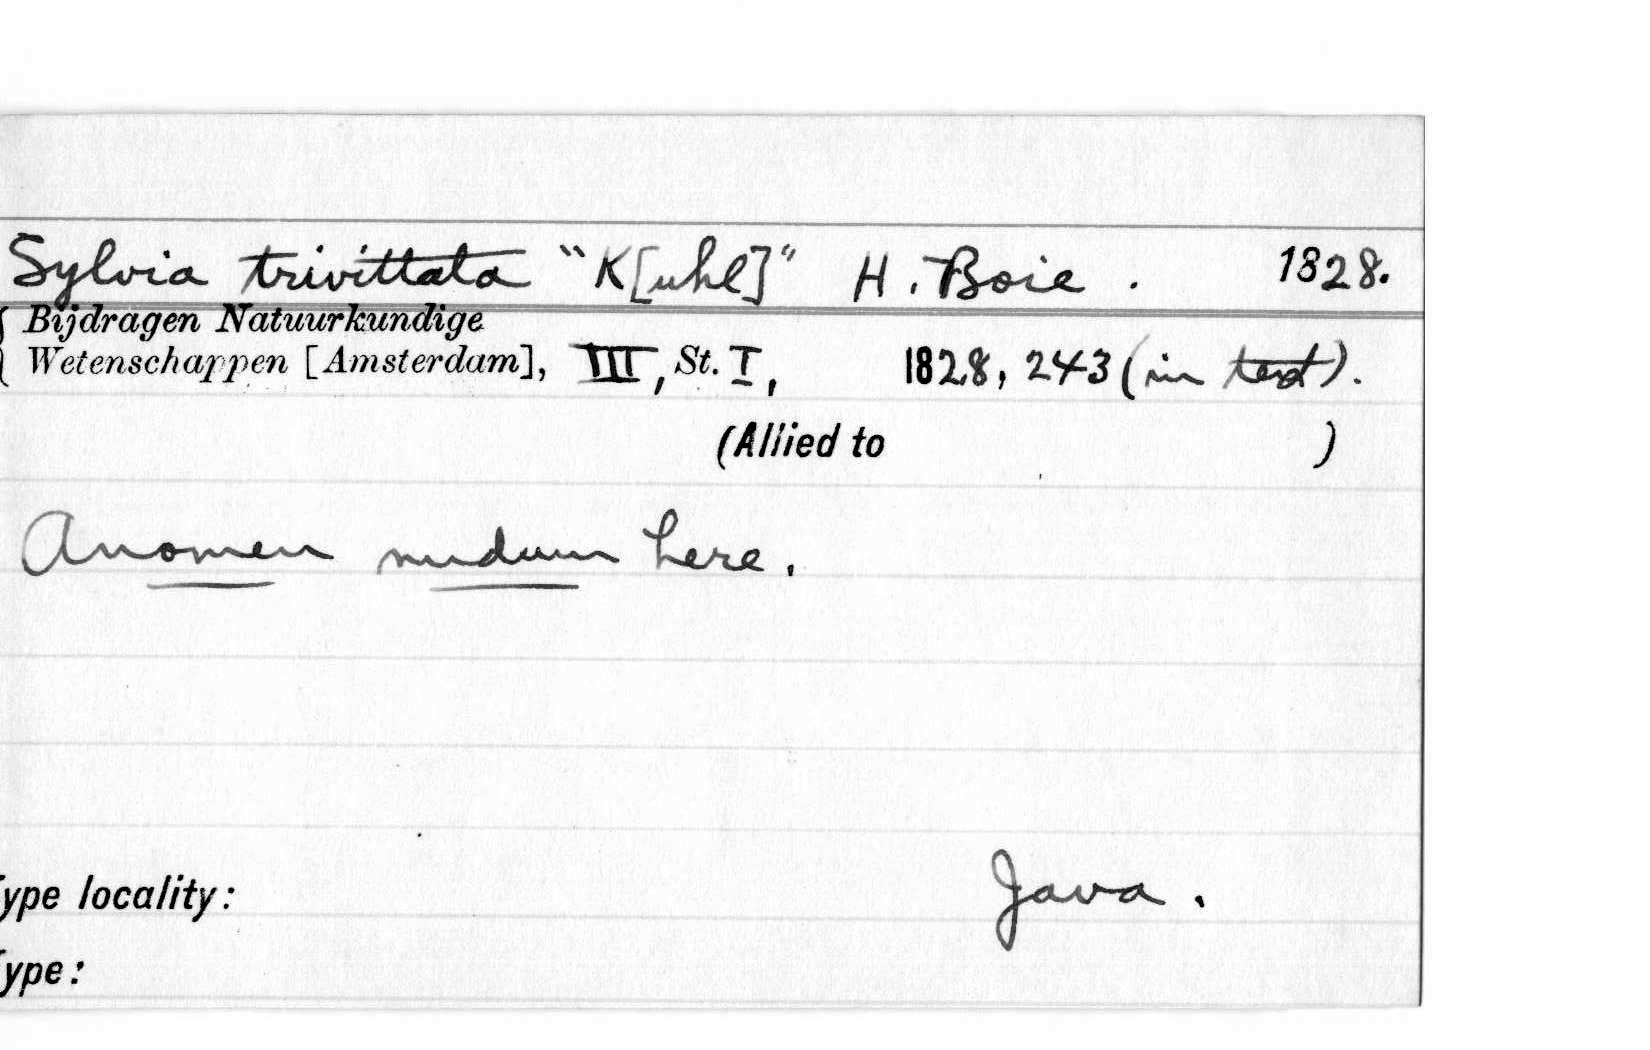 Sylvia trivittata "K[uhl]" H. Boie. 1828.
Bijdragen Natuurkundige
Wetenschappen [Amsterdam], III, St. I, 1828, 243 (in text).
(Allied to )
A nomen nudum here.
ype locality: Java.
ype: